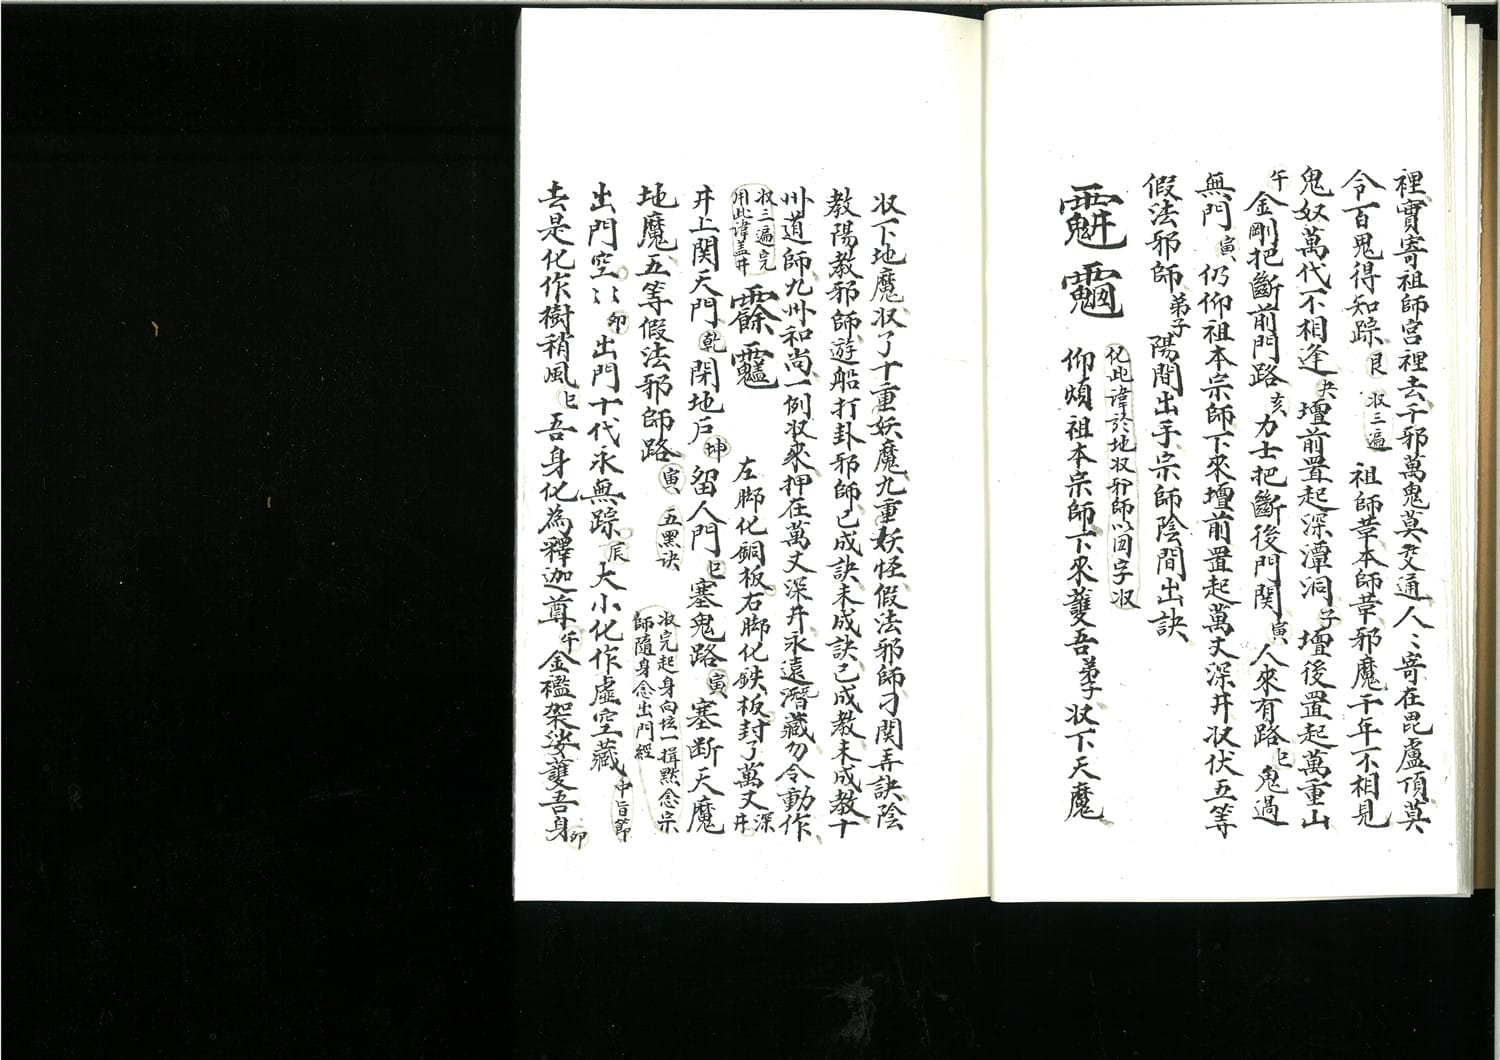 裡實寄祖師宮裡去千邪萬鬼莫交通人〻寄在毘盧頂莫
令百鬼得知踪 艮 収三遍 祖師葷本師葷邪魔千年不相見
鬼奴萬代不相逢 壇前置起深潭洞 子 壇後置起萬重山
午 金剛把斷前門路 亥 力士把斷後門関 寅 人來有路 巳 鬼過
無門 寅 仍仰祖本宗師下來壇前置起萬丈深井収伏五等
假法邪師 弟子 陽間出手宗師陰間出訣
化此諱於地収邪師以囬字収
仰煩祖本宗師下來䕶吾弟子収下天魔
収下地魔収了十重妖魔九重妖怪假法邪師刁関弄訣陰
教陽教邪師遊船打卦邪師已成訣未成訣已成教未成教十
卅道師九卅和尚一例収來押在萬丈深井永遠潛藏勿令動作
収三遍完
用此諱盖井
左脚化銅板右脚化鉄板封了萬丈深井
井上関天門 乾 閉地戶 坤 留人門 巳 塞鬼路 寅 塞断天魔
地魔五等假法邪師路 寅 五黑訣
収完起身向坛一揖黙念宗
師隨身念出門經
出門空〻 卯 出門十代永無踪 辰 大小化作虛空藏 中旨節
去是化作樹稍風 巳 吾身化為釋迦尊 午 金襤架娑䕶吾身 卯